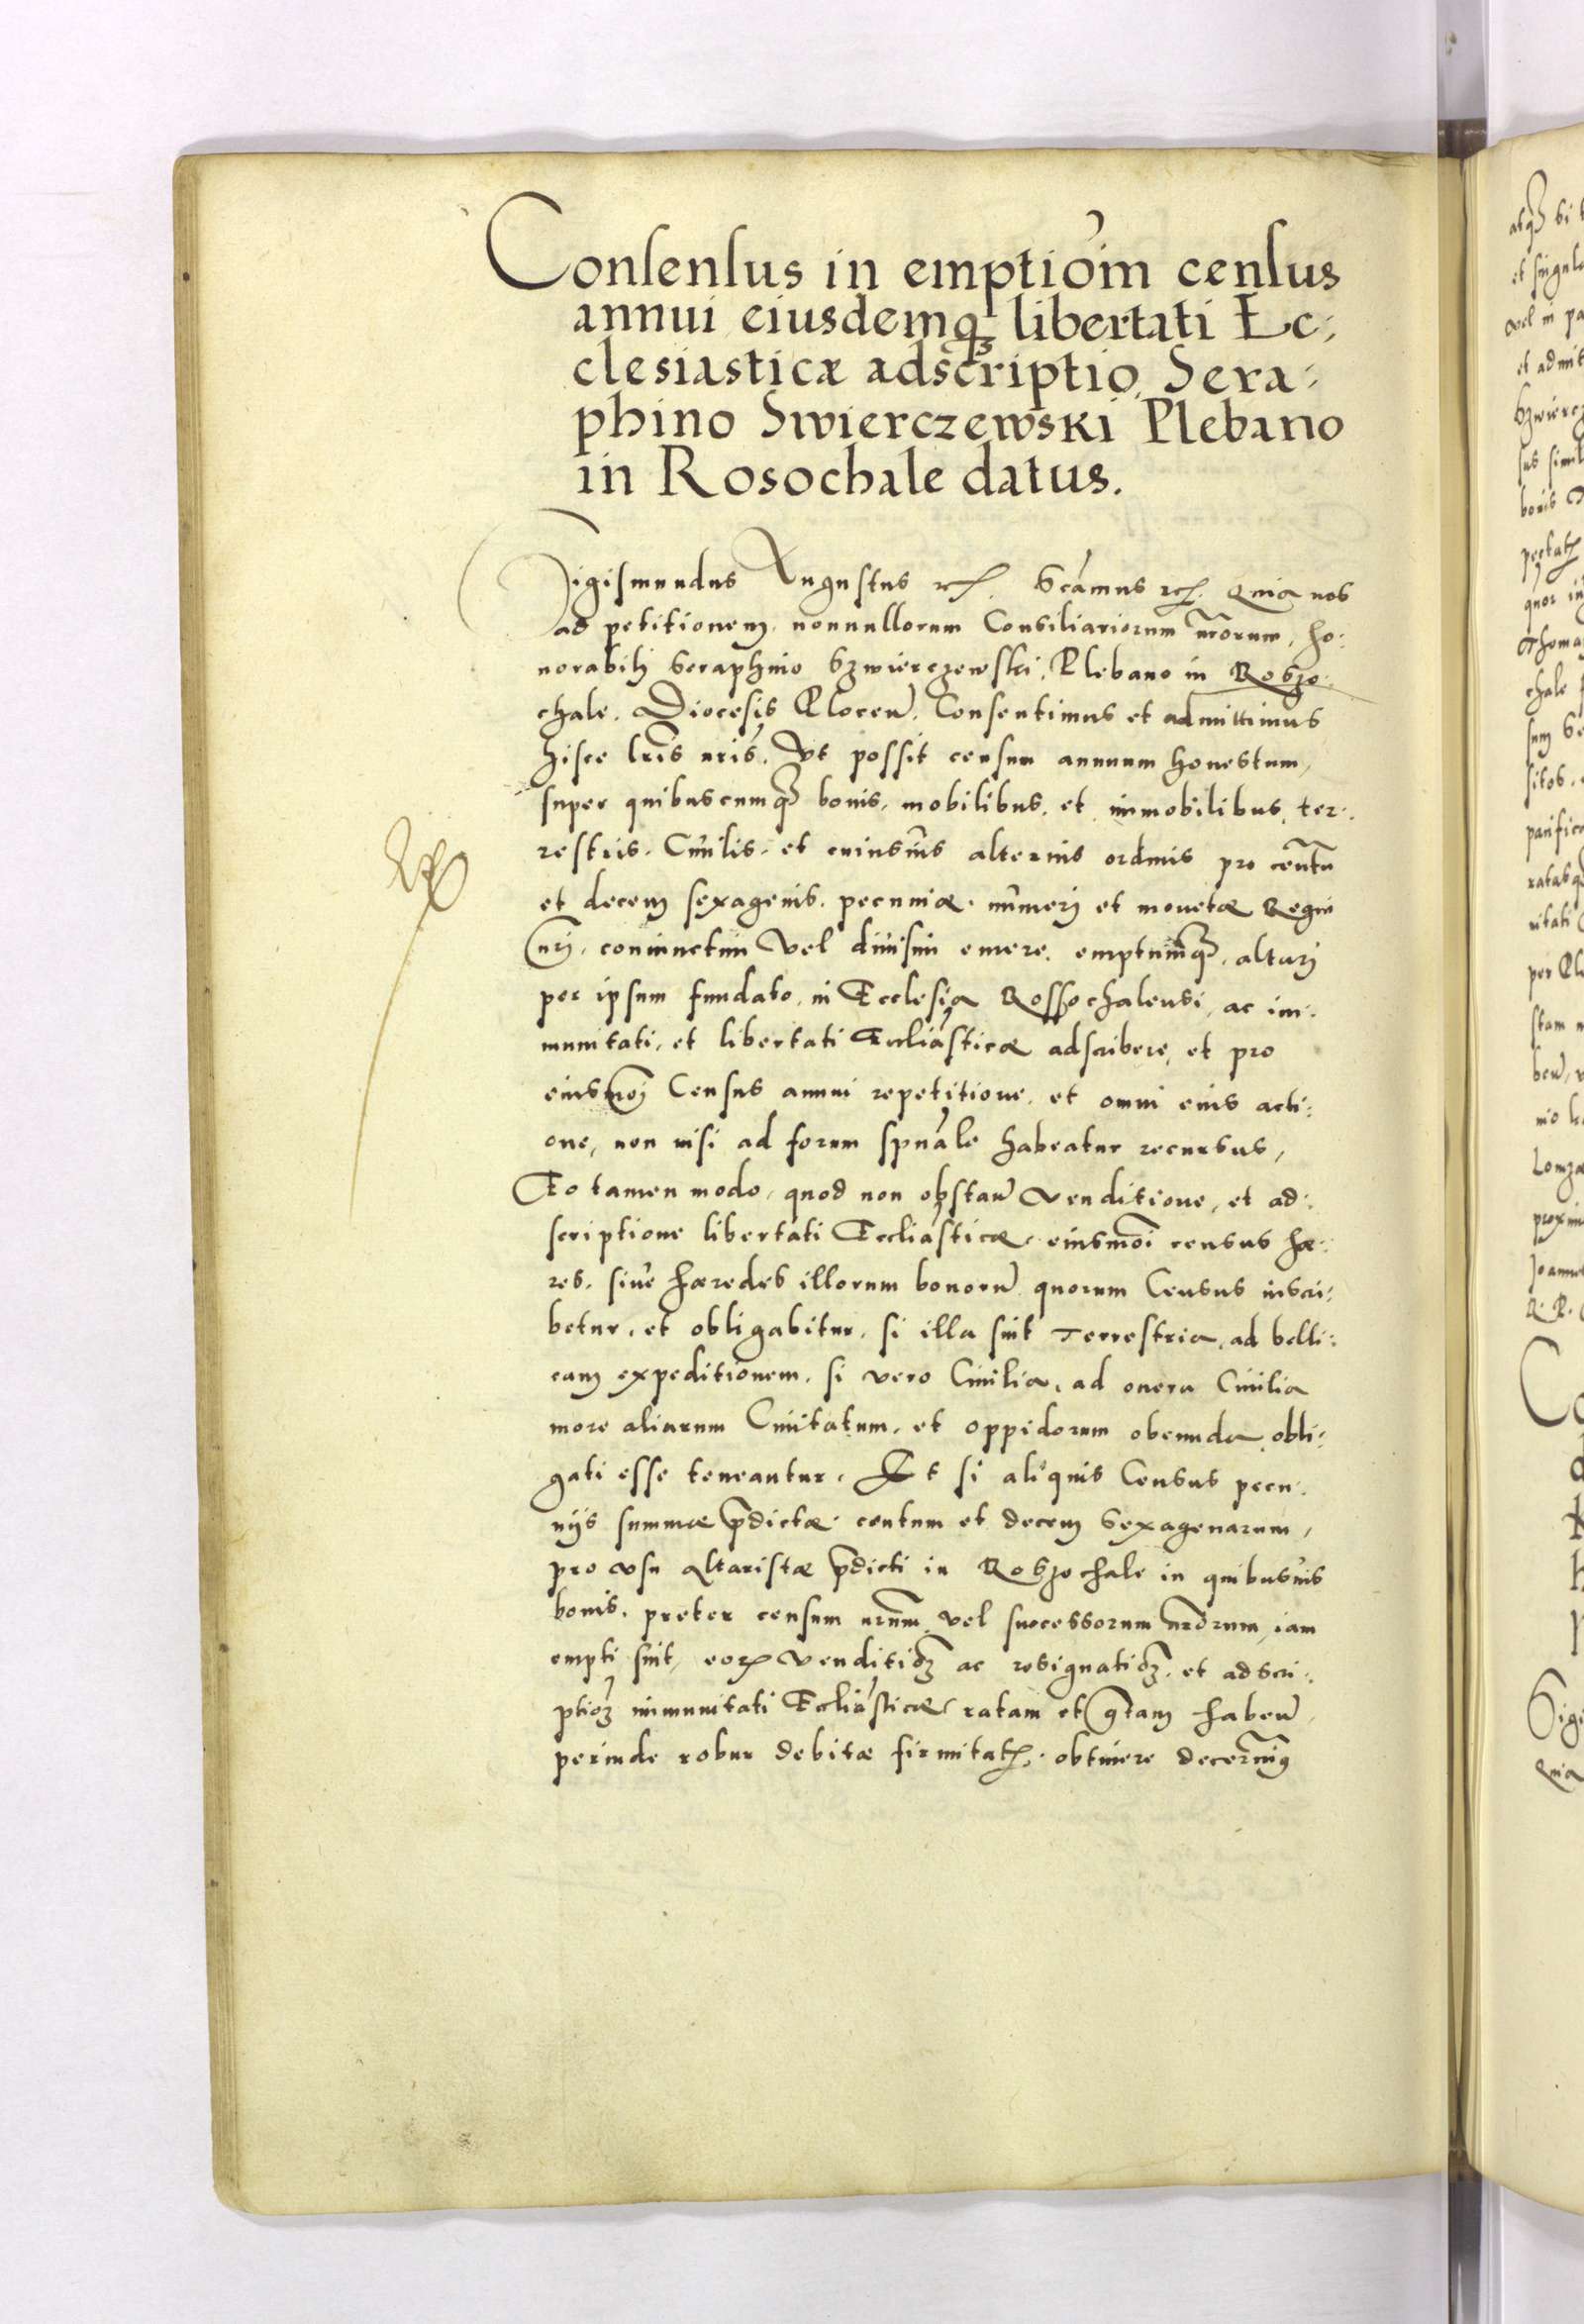 Consensus in emptiōm census
annui eiusdemq₃ libertati Ec:
clesiasticæ adscriptio, Sera:
phino Swierczewski Plebano
in Rosochale datus.
Sigismundus Augustus etc. Scāmus etc. Quia nos
ad petitionem nonnullorum Consiliariorum nr̄orum, ho:
norabili Seraphino Szwierczewski, Plebano in Roszo:
chale, Diocesis Plocen̄. Consentimus et admittimus
hisce lr̄is nr̄is, Vt possit censum annuum honestum,
super quibuscumq₃ bonis, mobilibus, et immobilibus, ter:
restris, Ciuilis, et cuiusuis alterius ordinis pro centū
et decem sexagenis, pecuniæ, numeri et monetæ Regni
nr̄i, coniunctim Vel diuisim emere, emptumq₃, altari
per ipsum fundato, in Ecclesia Roszochalensi, ac im:
munitati, et libertati Eccliāsticæ adscribere, et pro
eiusmōi Census annui repetitione, et omni eius acti:
one, non nisi ad forum spuāle habeatur recursus,
Eo tamen modo, quod non obstan̄ venditione, et ad:
scriptione libertati Eccliāsticæ, eiusmōi census hæ:
res, siue hæredes illorum bonorū quorum Census inscri:
betur, et obligabitur, si illa sint Terrestria, ad belli:
cam expeditionem, si vero Ciuilia, ad onera Ciuilia
more aliarum Ciuitatum, et oppidorum obeunda, obli:
gati esse teneantur. Et si aliquis Census pecu:
niis summæ p̄dictæ centum et decem sexagenarum,
pro vsu Altaristæ p̄dicti in Roszochale in quibusuis
bonis, preter censum nr̄um, vel successorum nr̄orum, iam
empti sint, eorꝝ venditiōꝫ ac resignatiōꝫ, et adscri:
ptiōꝫ immunitati Eccliāsticæ, ratam et grātam haben̄,
perinde robur debitæ firmitatꝭ, obtinere decernimꝰ